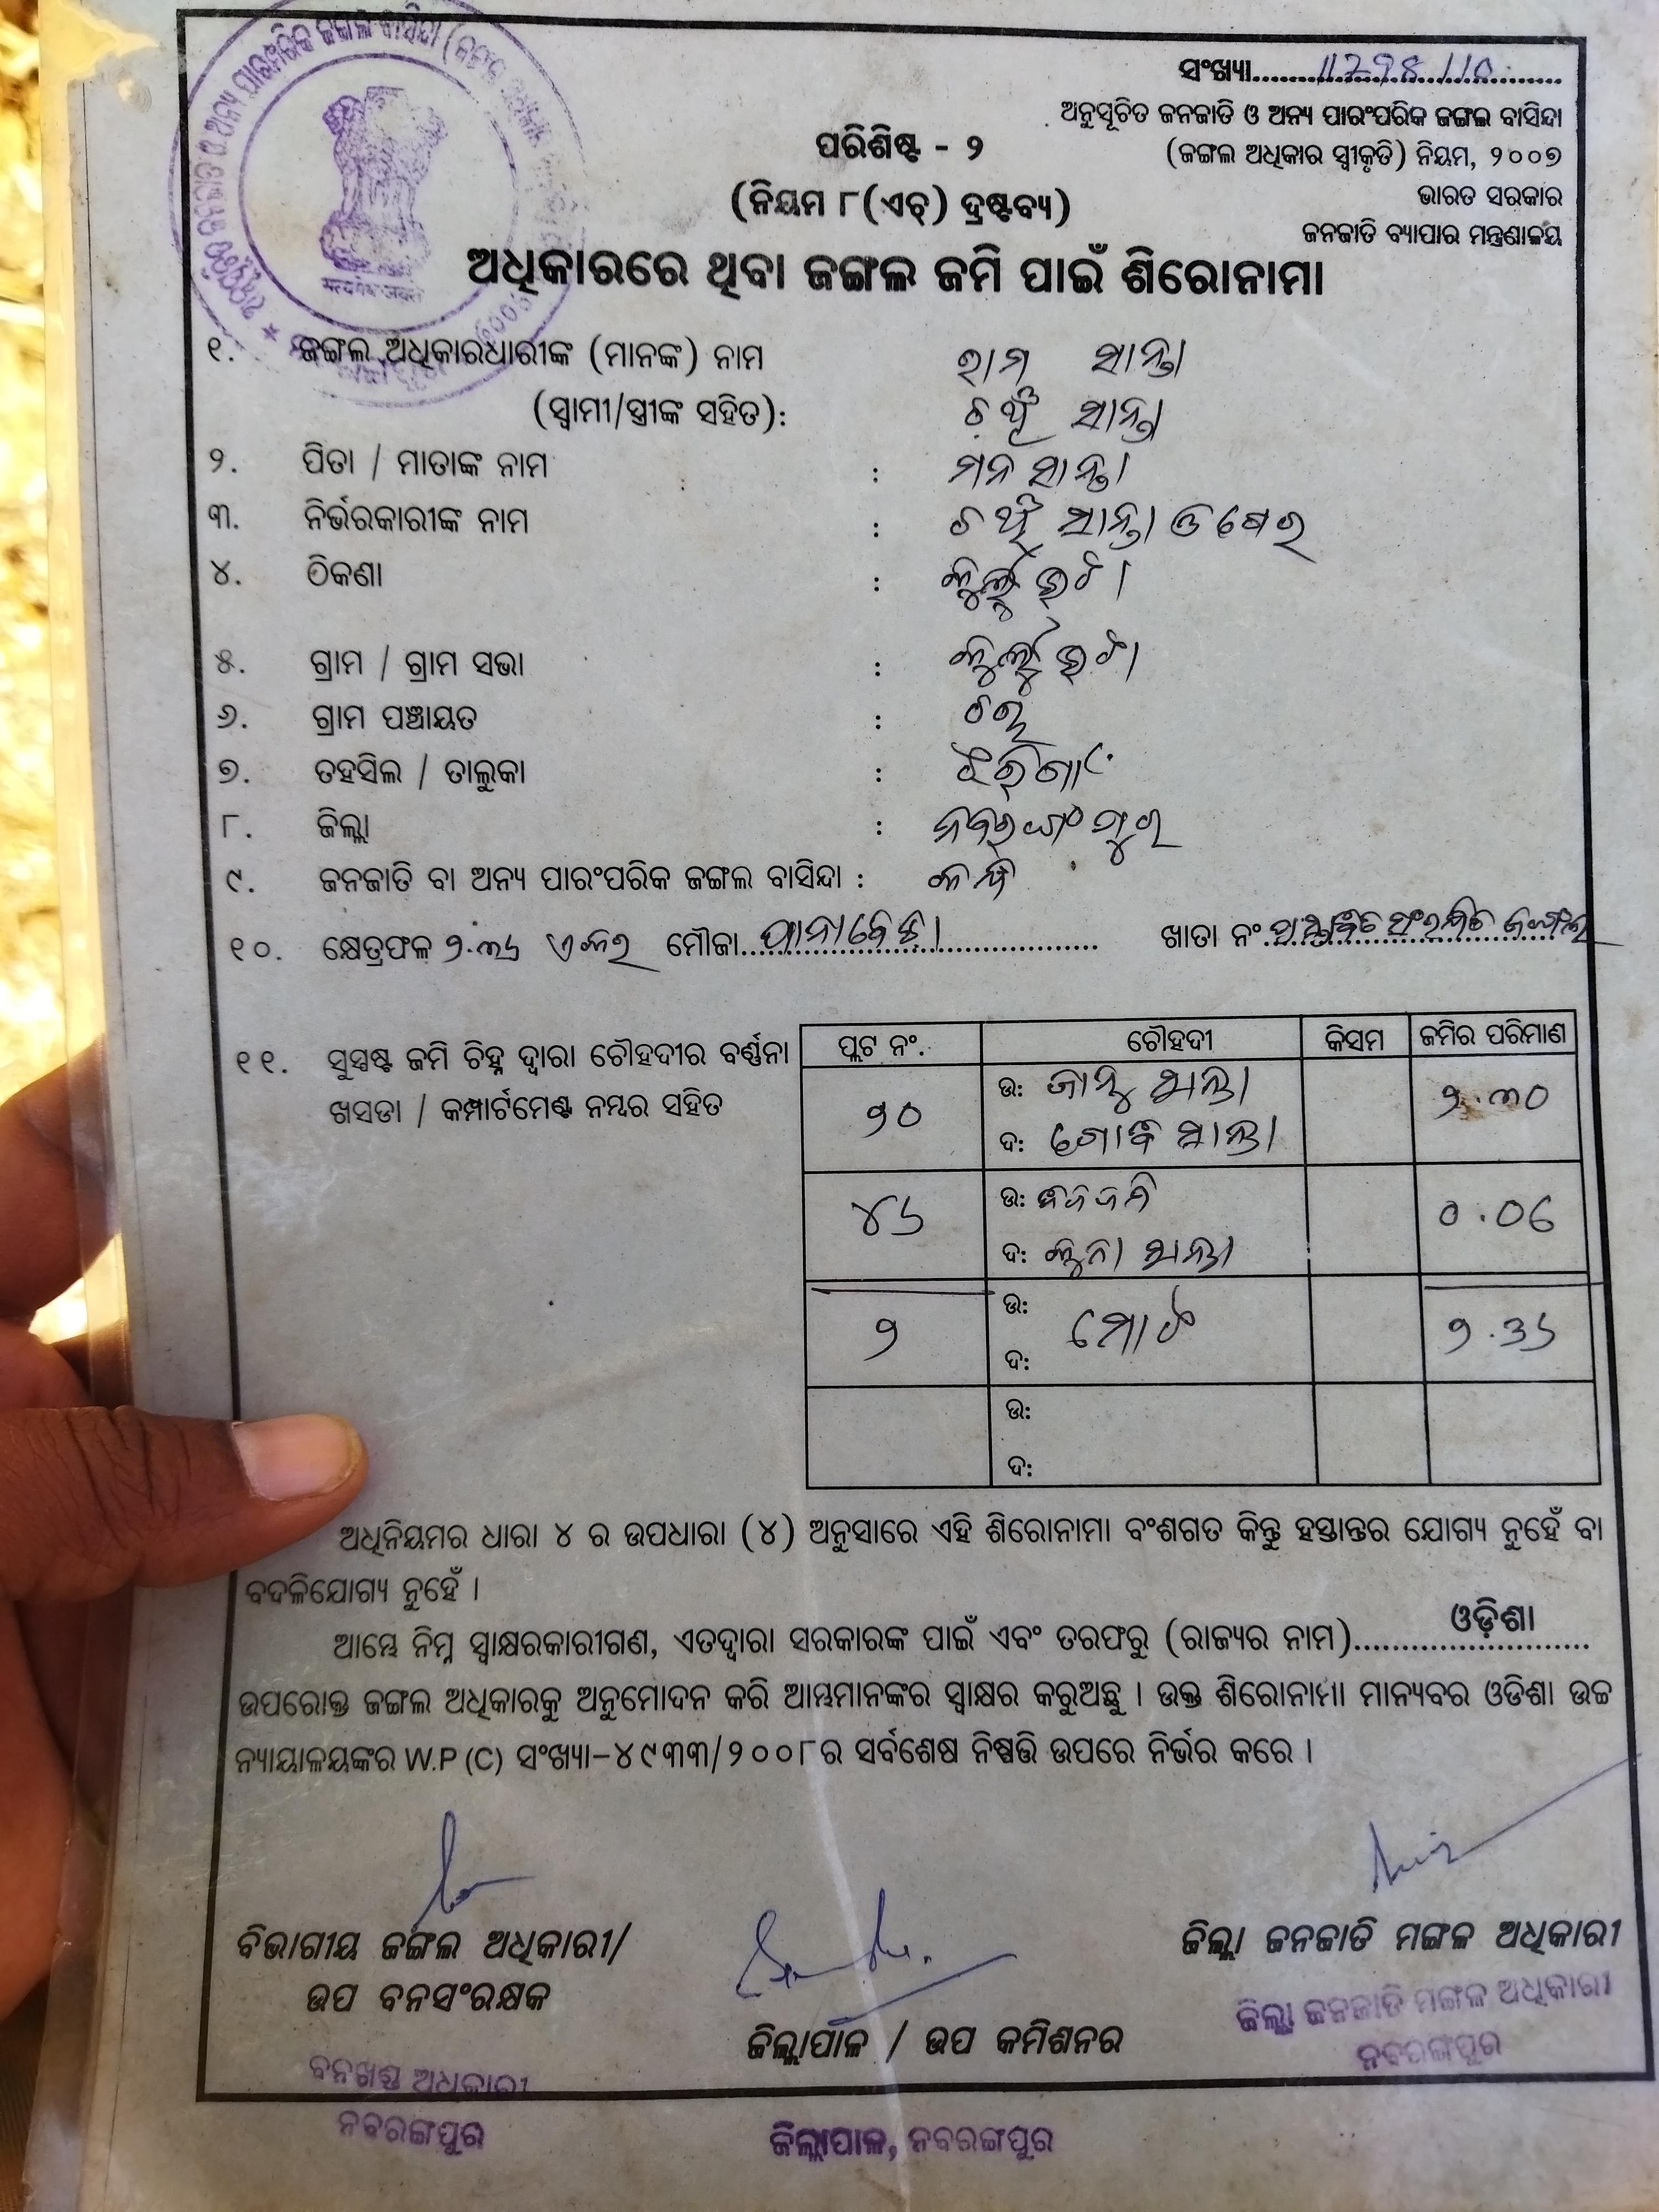 ସଂଖ୍ୟା
ଅନୁସୂଚିତ ଜନଜାତି ଓ ଅନ୍ୟ ପାରଂପରିକ ଜଙ୍ଗଲ ବାସିନ୍ଦା
(ଜଙ୍ଗଲ ଅଧିକାର ସ୍ୱୀକୃତି) ନିୟମ, ୨୦୦୭
ଭାରତ ସରକାର
ଜନଜାତି ବ୍ୟାପାର ମନ୍ତ୍ରଣାଳୟ
ପରିଶିଷ୍ଟ - ୨
(ନିୟମ ୮(ଏଚ୍) ଦ୍ରଷ୍ଟବ୍ୟ)
ଅଧିକାରରେ ଥିବା ଜଙ୍ଗଲ ଜମି ପାଇଁ ଶିରୋନାମା
୧. ଜଙ୍ଗଲ ଅଧିକାରଧାରୀଙ୍କ (ମାନଙ୍କ) ନାମ ରାମ ସାନ୍ତା
(ସ୍ୱାମୀ/ସ୍ତ୍ରୀଙ୍କ ସହିତ): ସାନ୍ତା
୨. ପିତା / ମାତାଙ୍କ ନାମ : ମନ ସାନ୍ତା
୩. ନିର୍ଭରକାରୀଙ୍କ ନାମ : ସାନ୍ତା ଓ
୪. ଠିକଣା :
୫. ଗ୍ରାମ / ଗ୍ରାମ ସଭା :
୬. ଗ୍ରାମ ପଞ୍ଚାୟତ :
୭. ତହସିଲ / ତାଲୁକା : ଝରିଗାଁ
୮. ଜିଲ୍ଲା : ନବରଙ୍ଗପୁର
୯. ଜନଜାତି ବା ଅନ୍ୟ ପାରଂପରିକ ଜଙ୍ଗଲ ବାସିନ୍ଦା : କନ୍ଧ
୧୦. କ୍ଷେତ୍ରଫଳ ୨.୩୬ ଏକର ମୌଜା ପାନାବେଡ଼ା ଖାତା ନଂ. ପ୍ରସ୍ତାବିତ ସଂରକ୍ଷିତ ଜଙ୍ଗଲ
୧୧. ସୁସ୍ପଷ୍ଟ ଜମି ଚିହ୍ନ ଦ୍ୱାରା ଚୌହଦୀର ବର୍ଣ୍ଣନା
ଖସଡା / କମ୍ପାର୍ଟମେଣ୍ଟ ନମ୍ବର ସହିତ
ପ୍ଲଟ ନଂ. ଚୌହଦୀ କିସମ ଜମିର ପରିମାଣ
ଉ: ସାନ୍ତା
୨୦ ୨.୩୦
ଦ: ସାନ୍ତା
ଉ:
୪୬ ୦.୦୬
ଦ: ସାନ୍ତା
ଉ:
୨ ମୋଟ ୨.୩୬
ଦ:
ଉ:
ଦ:
ଅଧିନିୟମର ଧାରା ୪ ର ଉପଧାରା (୪) ଅନୁସାରେ ଏହି ଶିରୋନାମା ବଂଶଗତ କିନ୍ତୁ ହସ୍ତାନ୍ତର ଯୋଗ୍ୟ ନୁହେଁ ବା
ବଦଳିଯୋଗ୍ୟ ନୁହେଁ ।
ଆମ୍ଭେ ନିମ୍ନ ସ୍ୱାକ୍ଷରକାରୀଗଣ, ଏତଦ୍ୱାରା ସରକାରଙ୍କ ପାଇଁ ଏବଂ ତରଫରୁ (ରାଜ୍ୟର ନାମ) ଓଡ଼ିଶା
ଉପରୋକ୍ତ ଜଙ୍ଗଲ ଅଧିକାରକୁ ଅନୁମୋଦନ କରି ଆମ୍ଭମାନଙ୍କର ସ୍ୱାକ୍ଷର କରୁଅଛୁ । ଉକ୍ତ ଶିରୋନାମା ମାନ୍ୟବର ଓଡିଶା ଉଚ୍ଚ
ନ୍ୟାୟାଳୟଙ୍କର W.P (C) ସଂଖ୍ୟା-୪୯୩୩/୨୦୦୮ର ସର୍ବଶେଷ ନିଷ୍ପତ୍ତି ଉପରେ ନିର୍ଭର କରେ ।
ବିଭାଗୀୟ ଜଙ୍ଗଲ ଅଧିକାରୀ/
ଉପ ବନସଂରକ୍ଷକ
ଜିଲ୍ଲାପାଳ / ଉପ କମିଶନର
ଜିଲ୍ଲା ଜନଜାତି ମଙ୍ଗଳ ଅଧିକାରୀ
ଜିଲ୍ଲା ଜନଜାତି ମଙ୍ଗଳ ଅଧିକାରୀ
ନବରଙ୍ଗପୁର
ବନଖଣ୍ଡ ଅଧିକାରୀ
ନବରଙ୍ଗପୁର
ଜିଲ୍ଲାପାଳ, ନବରଙ୍ଗପୁର